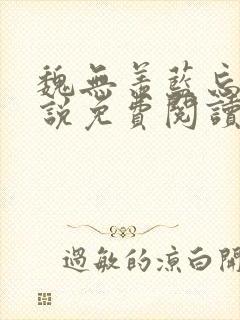 魏無羨藍忘
說免費閱讀
過敏的涼白開